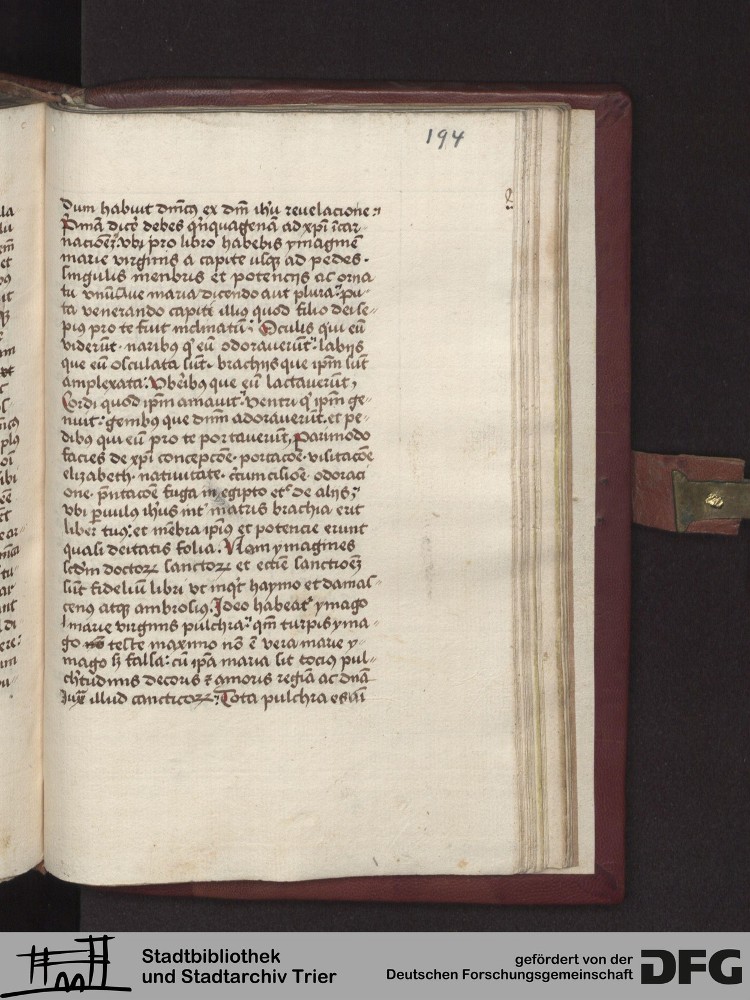 194
dum habuit dm̄cꝰ ex dm̄ ihū reuelacione:
Primā dicē debes qīnquagenā ad xp̄i īcar
nacioneꝫ. vbi pro libro habebis ymaginē
marie virginis a capite usqꝫ ad pedes.
singulis menbris et potencijs ac orna
tu vnū aue maria dicendo aut plura: pu
ta venerando capiti illiꝰ quod filio dei se
piꝰ pro te fuit inclinatū: Oculis qui eū
viderūt. naribꝰ q̄ eū odorauerūt: labijs
que eū osculata sūt. brachijs que ip̄m sūt
amplexata: Vberibꝰ que eū lactauerūt,
Cordi quod ip̄m amauit: ventri q̄ ip̄m ge
nuit: genibꝰ que dnm̄ adorauerūt. et pe
dibꝰ qui eū pro te portauerūt, parimodo
facies de xp̄i concepcōe. portacōe. visitacōe
elizabeth. natiuitate. c̄cumcisiōe odoraci
one. p̄ntacōe fuga in egipto et̄ de alijs:
vbi ꝑuulꝰ ihūs int̄ matris brachia erit
liber tuꝰ: et mēbra ip̄iꝰ et potencie erunt
quasi deitatis folia. Nam ymagines
scd̄m doctoꝝ sanctoꝝ et eccīe sanctioēꝫ
sūt fideliū libri vt inqͥt haymo et damas
cenꝰ atqꝫ ambrosiꝰ. Ideo habeat᷑ ymago
marie virginis pulchra: qm̄ turpis yma
go teste maximo nō ē vera marie y
mago sꝫ falsa: cū ip̄a maria sit tociꝰ pul
ch̓tudinis decoris ⁊ amoris regīa ac dn̄a
illud canticoꝝ: Tota pulchra es am̄
Stadtbibliothek
und Stadtarchiv Trier
gefördert von der
Deutschen Forschungsgemeinschaft
DFG